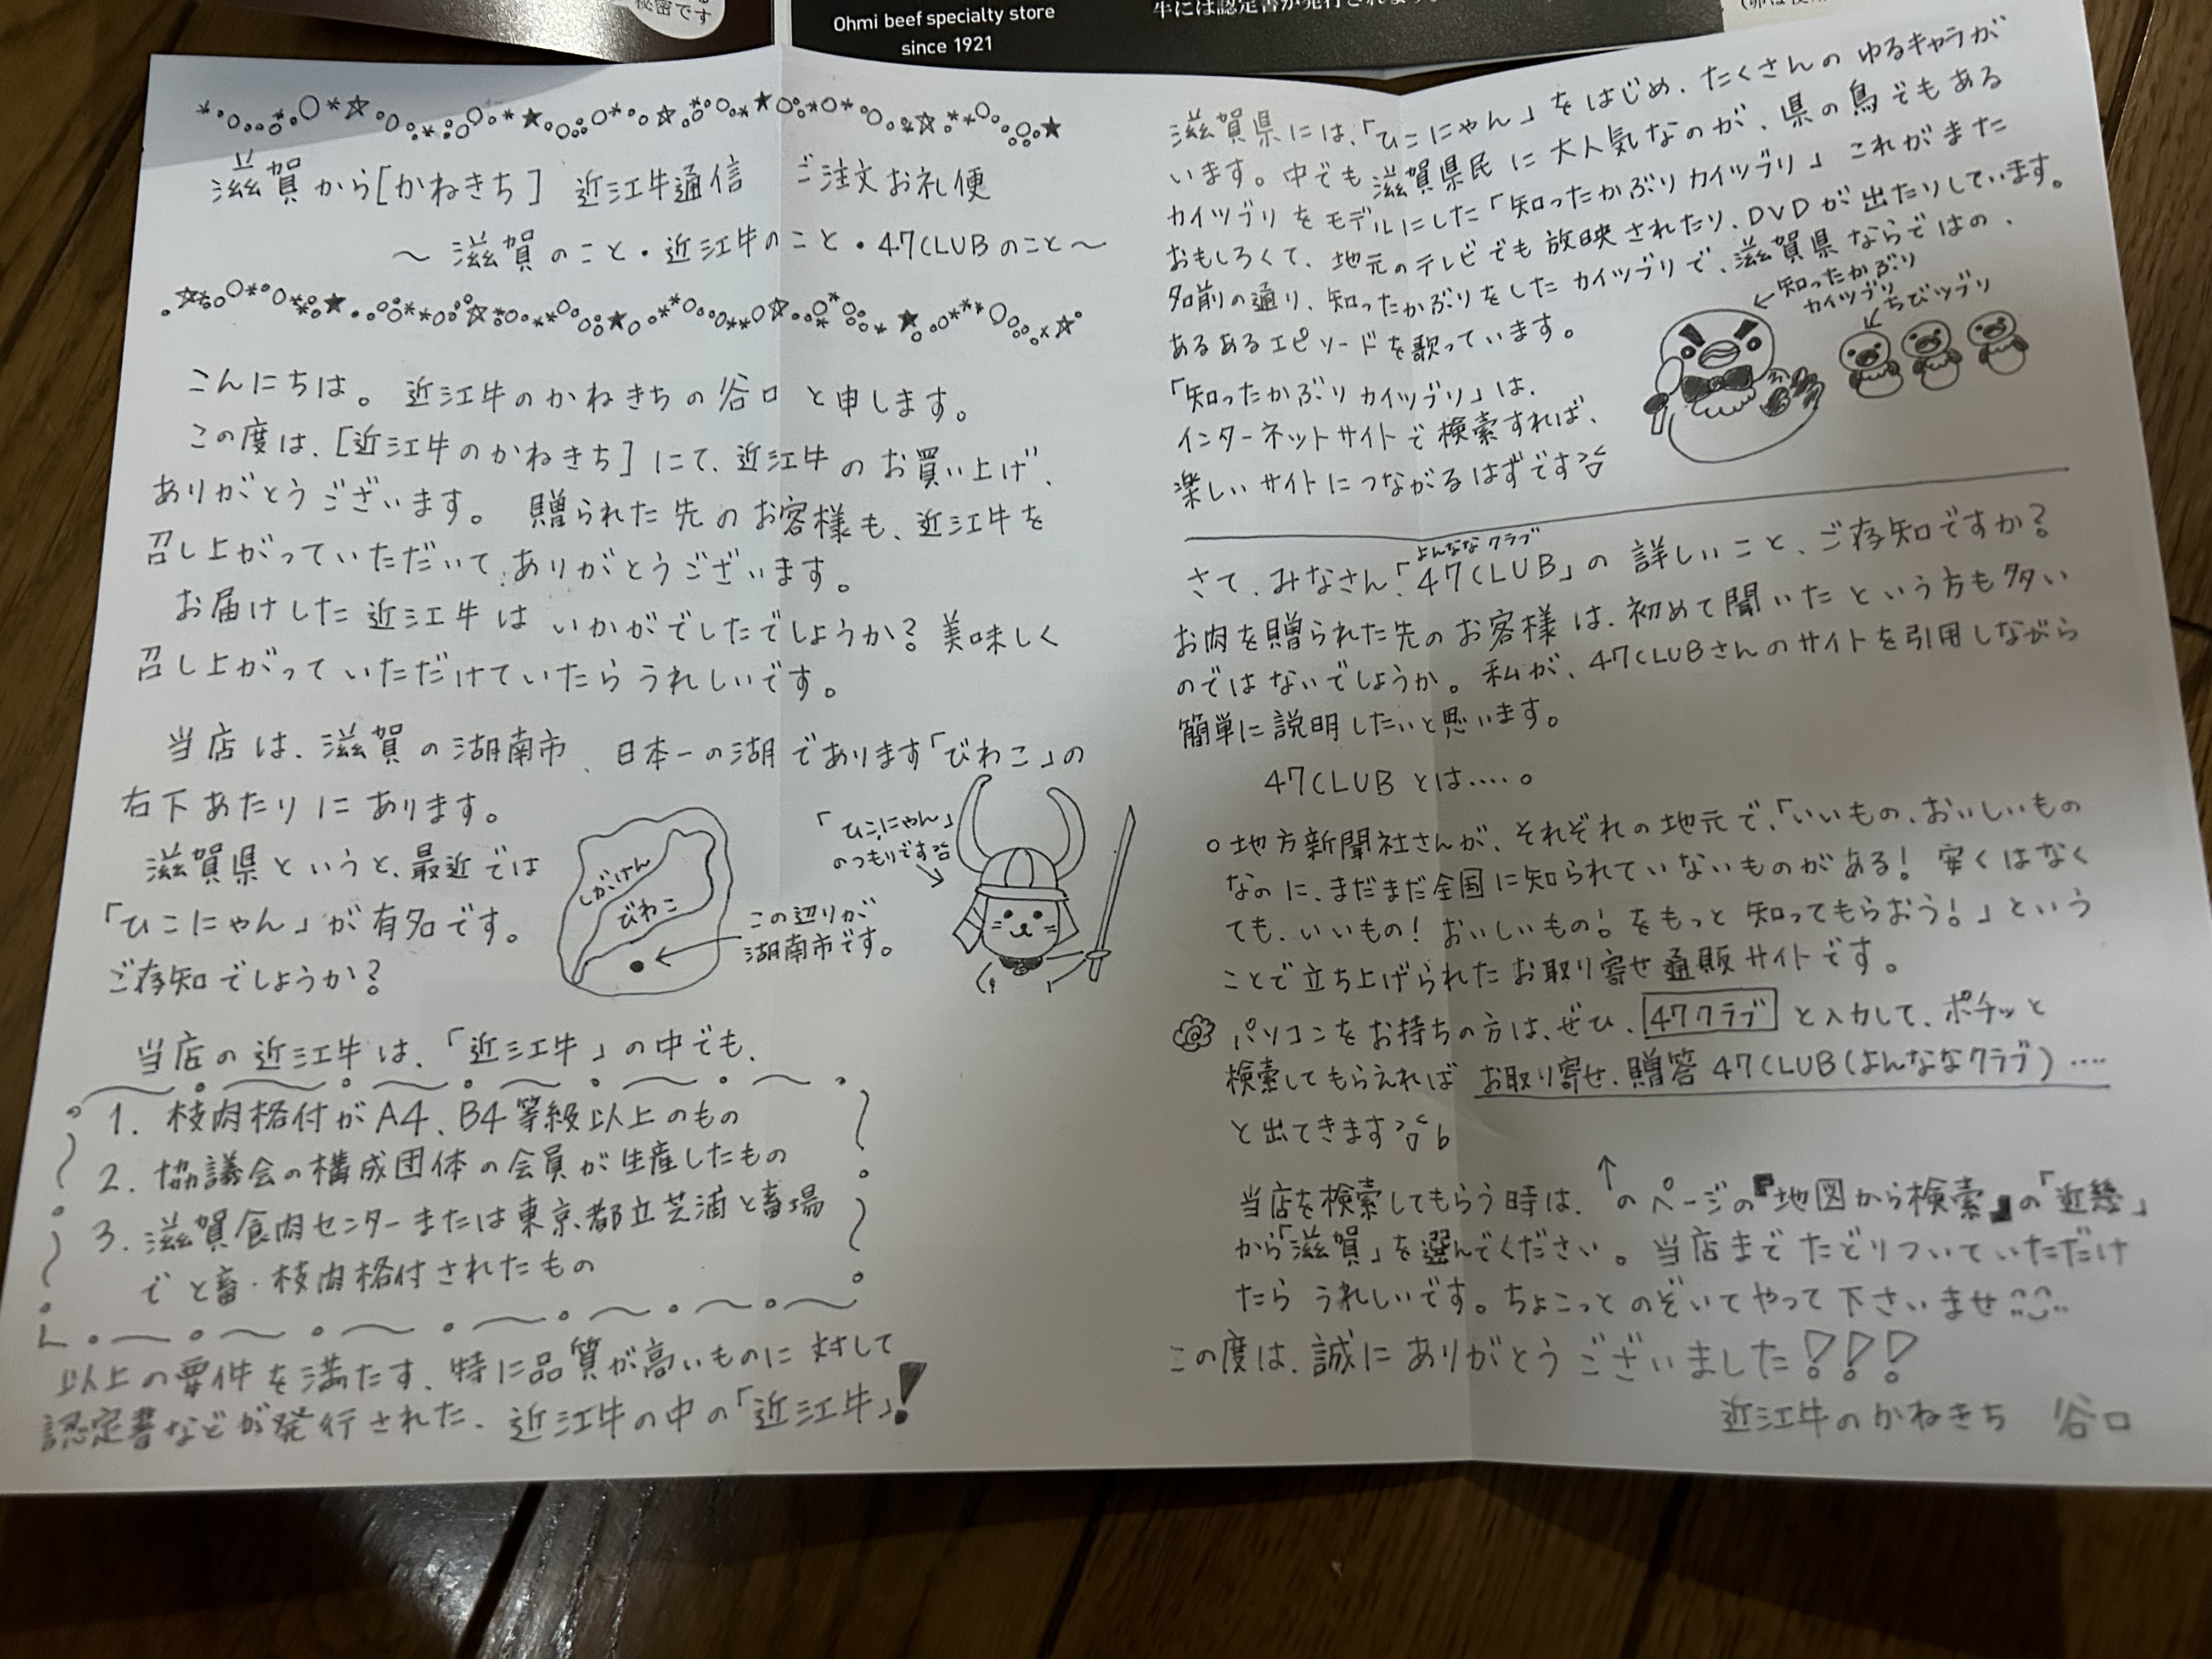 秘密です
Ohmi beef specialty store
since 1921
牛には認定書が発行されます
滋賀から[かねきち] 近江牛通信 ご注文お礼便
～滋賀のこと・近江牛のこと・47CLUBのこと～
こんにちは。近江牛のかねきちの谷口と申します。
この度は、[近江牛のかねきち]にて、近江牛のお買い上げ、
ありがとうございます。贈られた先のお客様も、近江牛を
召し上がっていただいて、ありがとうございます。
お届けした近江牛はいかがでしたでしょうか？美味しく
召し上がっていただけていたらうれしいです。
当店は、滋賀の湖南市、日本一の湖であります「びわこ」の
右下あたりにあります。
滋賀県というと、最近では
「ひこにゃん」が有名です。
ご存知でしょうか？
しがけん
びわこ
この辺りが
湖南市です。
「ひこにゃん」
のつもりです
当店の近江牛は、「近江牛」の中でも、
1. 枝肉格付がA4、B4等級以上のもの
2. 協議会の構成団体の会員が生産したもの
3. 滋賀食肉センターまたは東京都立芝浦と畜場
でと畜・枝肉格付されたもの
以上の要件を満たす、特に品質が高いものに対して
認定書などが発行された、近江牛の中の「近江牛」！
滋賀県には、「ひこにゃん」をはじめ、たくさんのゆるキャラが
います。中でも滋賀県民に大人気なのが、県の鳥でもある
カイツブリをモデルにした「知ったかぶりカイツブリ」これがまた
おもしろくて、地元のテレビでも放映されたり、DVDが出たりしています。
名前の通り、知ったかぶりをしたカイツブリで、滋賀県ならではの、
あるあるエピソードを歌っています。
←知ったかぶり
カイツブリ
ちびツブリ
「知ったかぶりカイツブリ」は、
インターネットサイトで検索すれば、
楽しいサイトにつながるはずです
よんななクラブ
さて、みなさん、「47CLUB」の詳しいこと、ご存知ですか？
お肉を贈られた先のお客様は、初めて聞いたという方も多い
のではないでしょうか。私が、47CLUBさんのサイトを引用しながら
簡単に説明したいと思います。
47CLUBとは‥‥。
○地方新聞社さんが、それぞれの地元で、「いいもの、おいしいもの
なのに、まだまだ全国に知られていないものがある！安くはなく
ても、いいもの！おいしいもの！をもっと知ってもらおう！」という
ことで立ち上げられたお取り寄せ通販サイトです。
パソコンをお持ちの方は、ぜひ、47クラブと入力して、ポチッと
検索してもらえればお取り寄せ、贈答47CLUB(よんななクラブ)‥‥
と出てきます
当店を検索してもらう時は、↑のページの『地図から検索』の「近畿」
から「滋賀」を選んでください。当店までたどりついていただけ
たらうれしいです。ちょこっとのぞいてやって下さいませ
この度は、誠にありがとうございました！！！
近江牛のかねきち 谷口